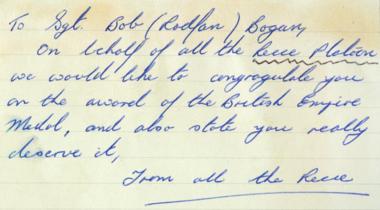 To Sgt. Bob (Rodfan) Bogan,
On behalf of all the Recce Platoon
we would like to congregulate you
on the award of the British Empire
Medal, and also state you really
deserve it,
From all the Recce